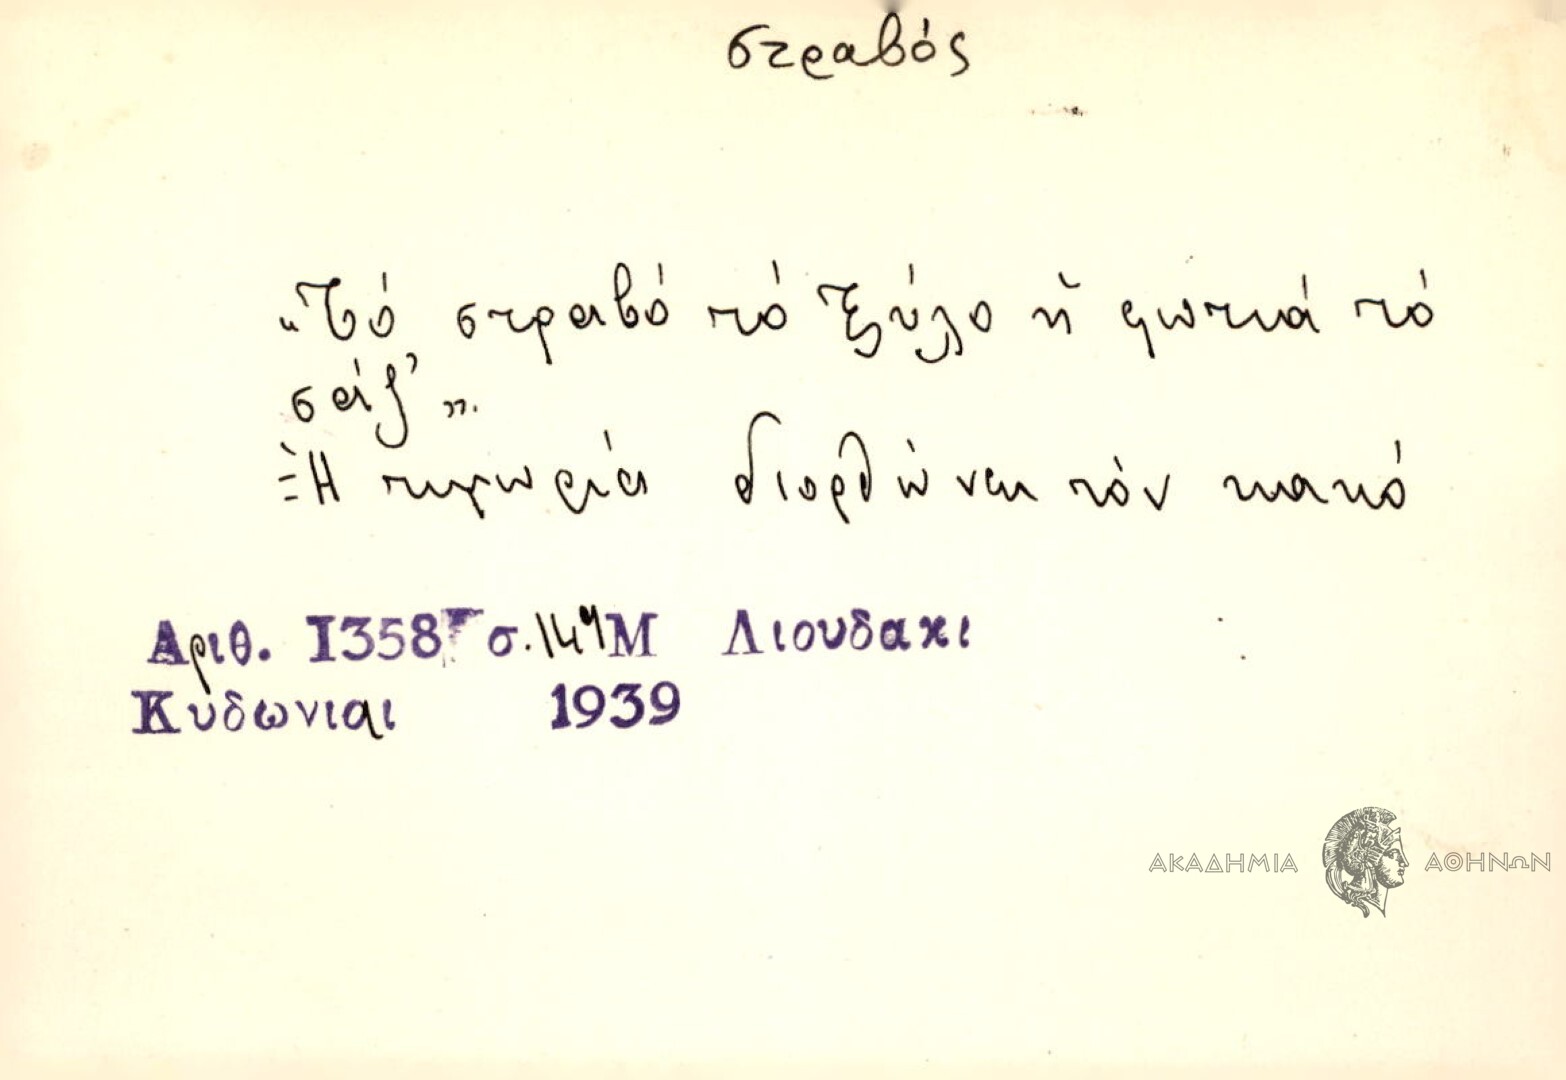 στραβός
"Τό στραβό τό ξύλο ἡ φωτιά τό
σάζ' ".
= Ἡ τιμωρία διορθώνει τόν κακό
Αριθ. 1358 σ. 149 Μ Λιουδακι
Κυδωνιαι 1939
ΑΚΑΔΗΜΙΑ ΑΘΗΝΩΝ